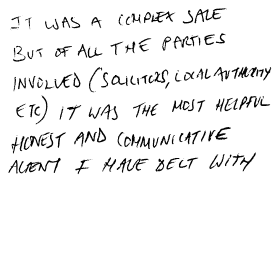 IT WAS A COMPLEX SALE
BUT OF ALL THE PARTIES
INVOLVED (SOLICITORS, LOCAL AUTHORITY
ETC) IT WAS THE MOST HELPFUL
HONEST AND COMMUNICATIVE
AGENT I HAVE DELT WITH